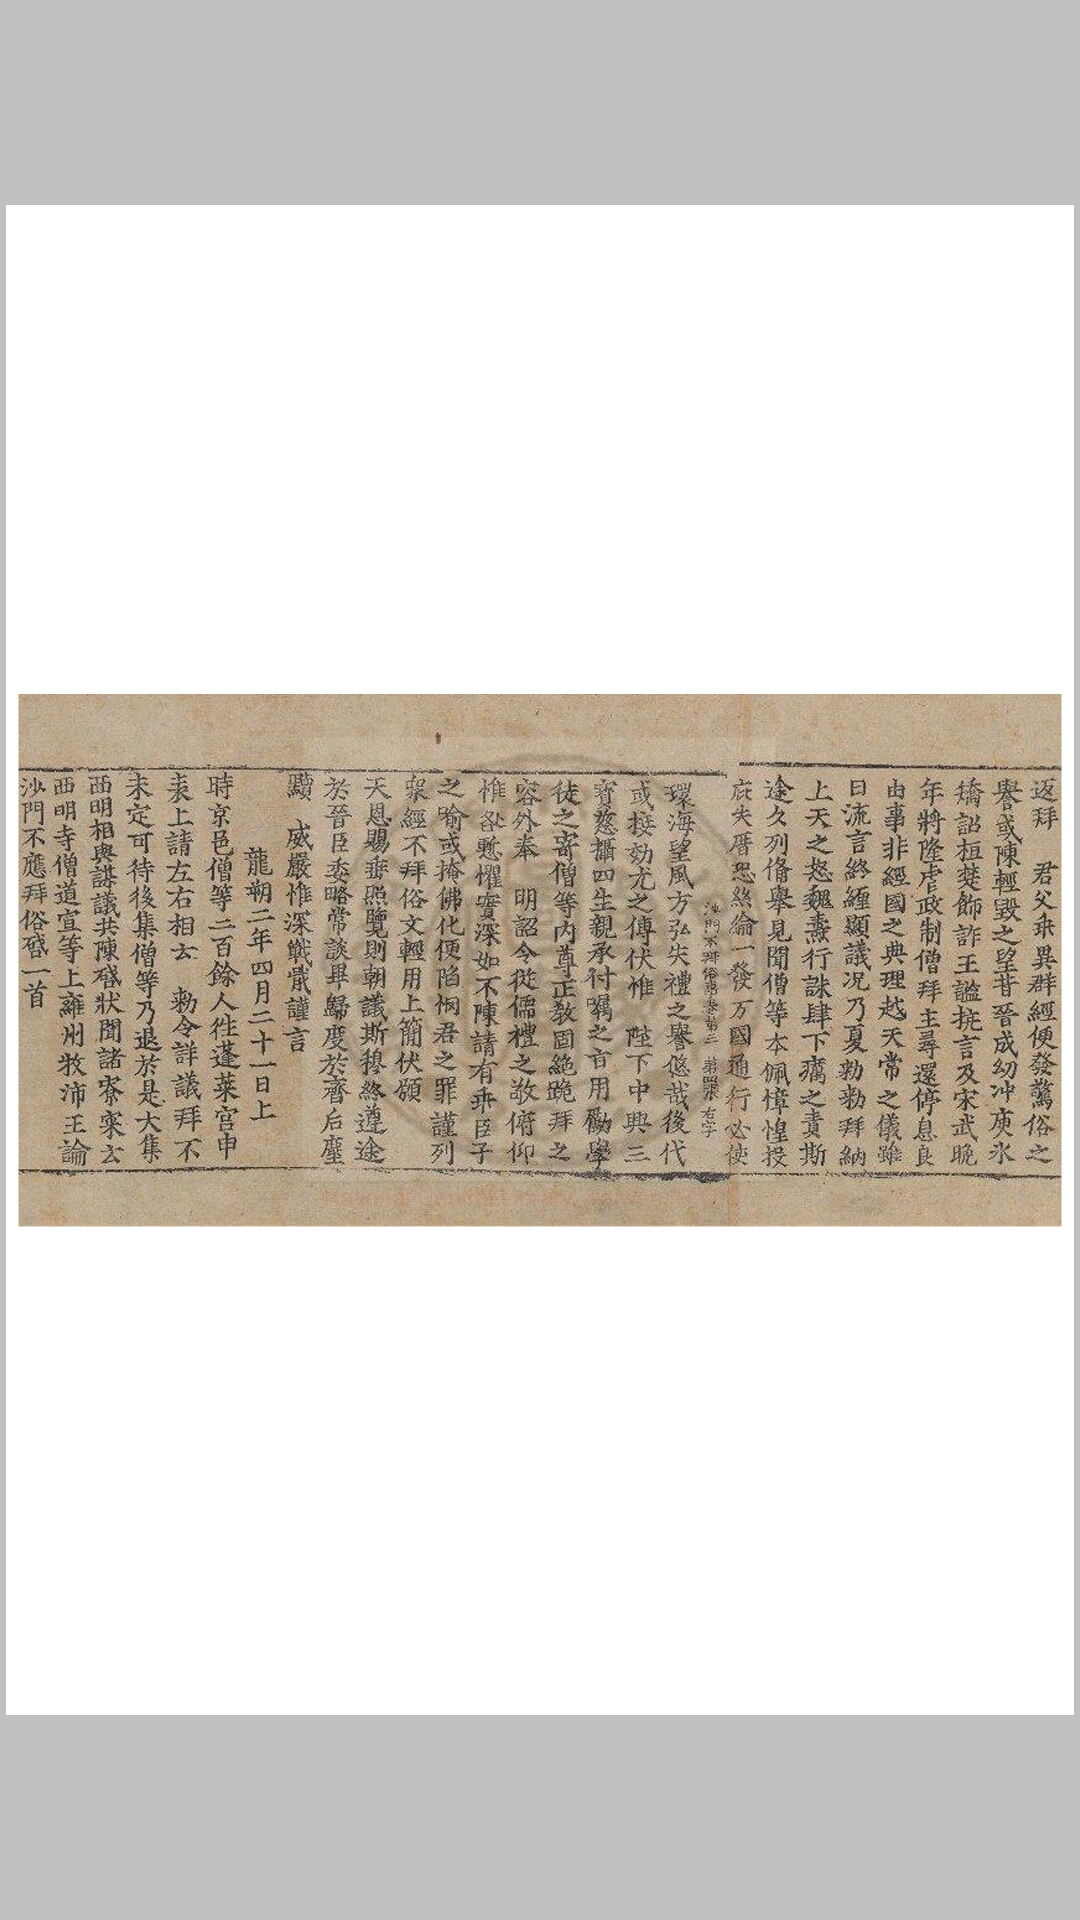 返拜　君父乖異群經便發驚俗之
譽或陳輕毀之望昔晉成幼冲庾氷
矯詔桓楚飾詐王謐抗言及宋武晚
年將隆虐政制僧拜主尋還停息良
由事非經國之典理越天常之儀雖
曰流言終纏顯議况乃夏勃勑拜納
上天之怒魏燾行誅肆下癘之責斯
途久列備舉見聞僧等本佩慞惶投
庇失厝恐絲綸一發万國通行必使
沙門不拜俗事卷第三　第四張　右字
環海望風方弘失禮之譽悠哉後代
或接効尤之傳伏惟　陛下中興三
寶慈攝四生親承付囑之旨用勵學
徒之寄僧等内遵正教固絶跪拜之
容外奉　明詔令從儒禮之敬俯仰
惟咎慙懼實深如不陳請有乖臣子
之喻或掩佛化便陷惘君之罪謹列
衆經不拜俗文輕用上簡伏願
天恩賜垂照覽則朝議斯穆終遵途
於晉臣委略常談畢歸度於齊后塵
黷　威嚴惟深戰戢謹言
龍朔二年四月二十一日上
時京邑僧等二百餘人徃蓬萊宫申
表上請左右相云　勑令詳議拜不
未定可待後集僧等乃退於是大集
西明相與謀議共陳啓狀聞諸寮寀云
西明寺僧道宣等上雍州牧沛王論
沙門不應拜俗啓一首